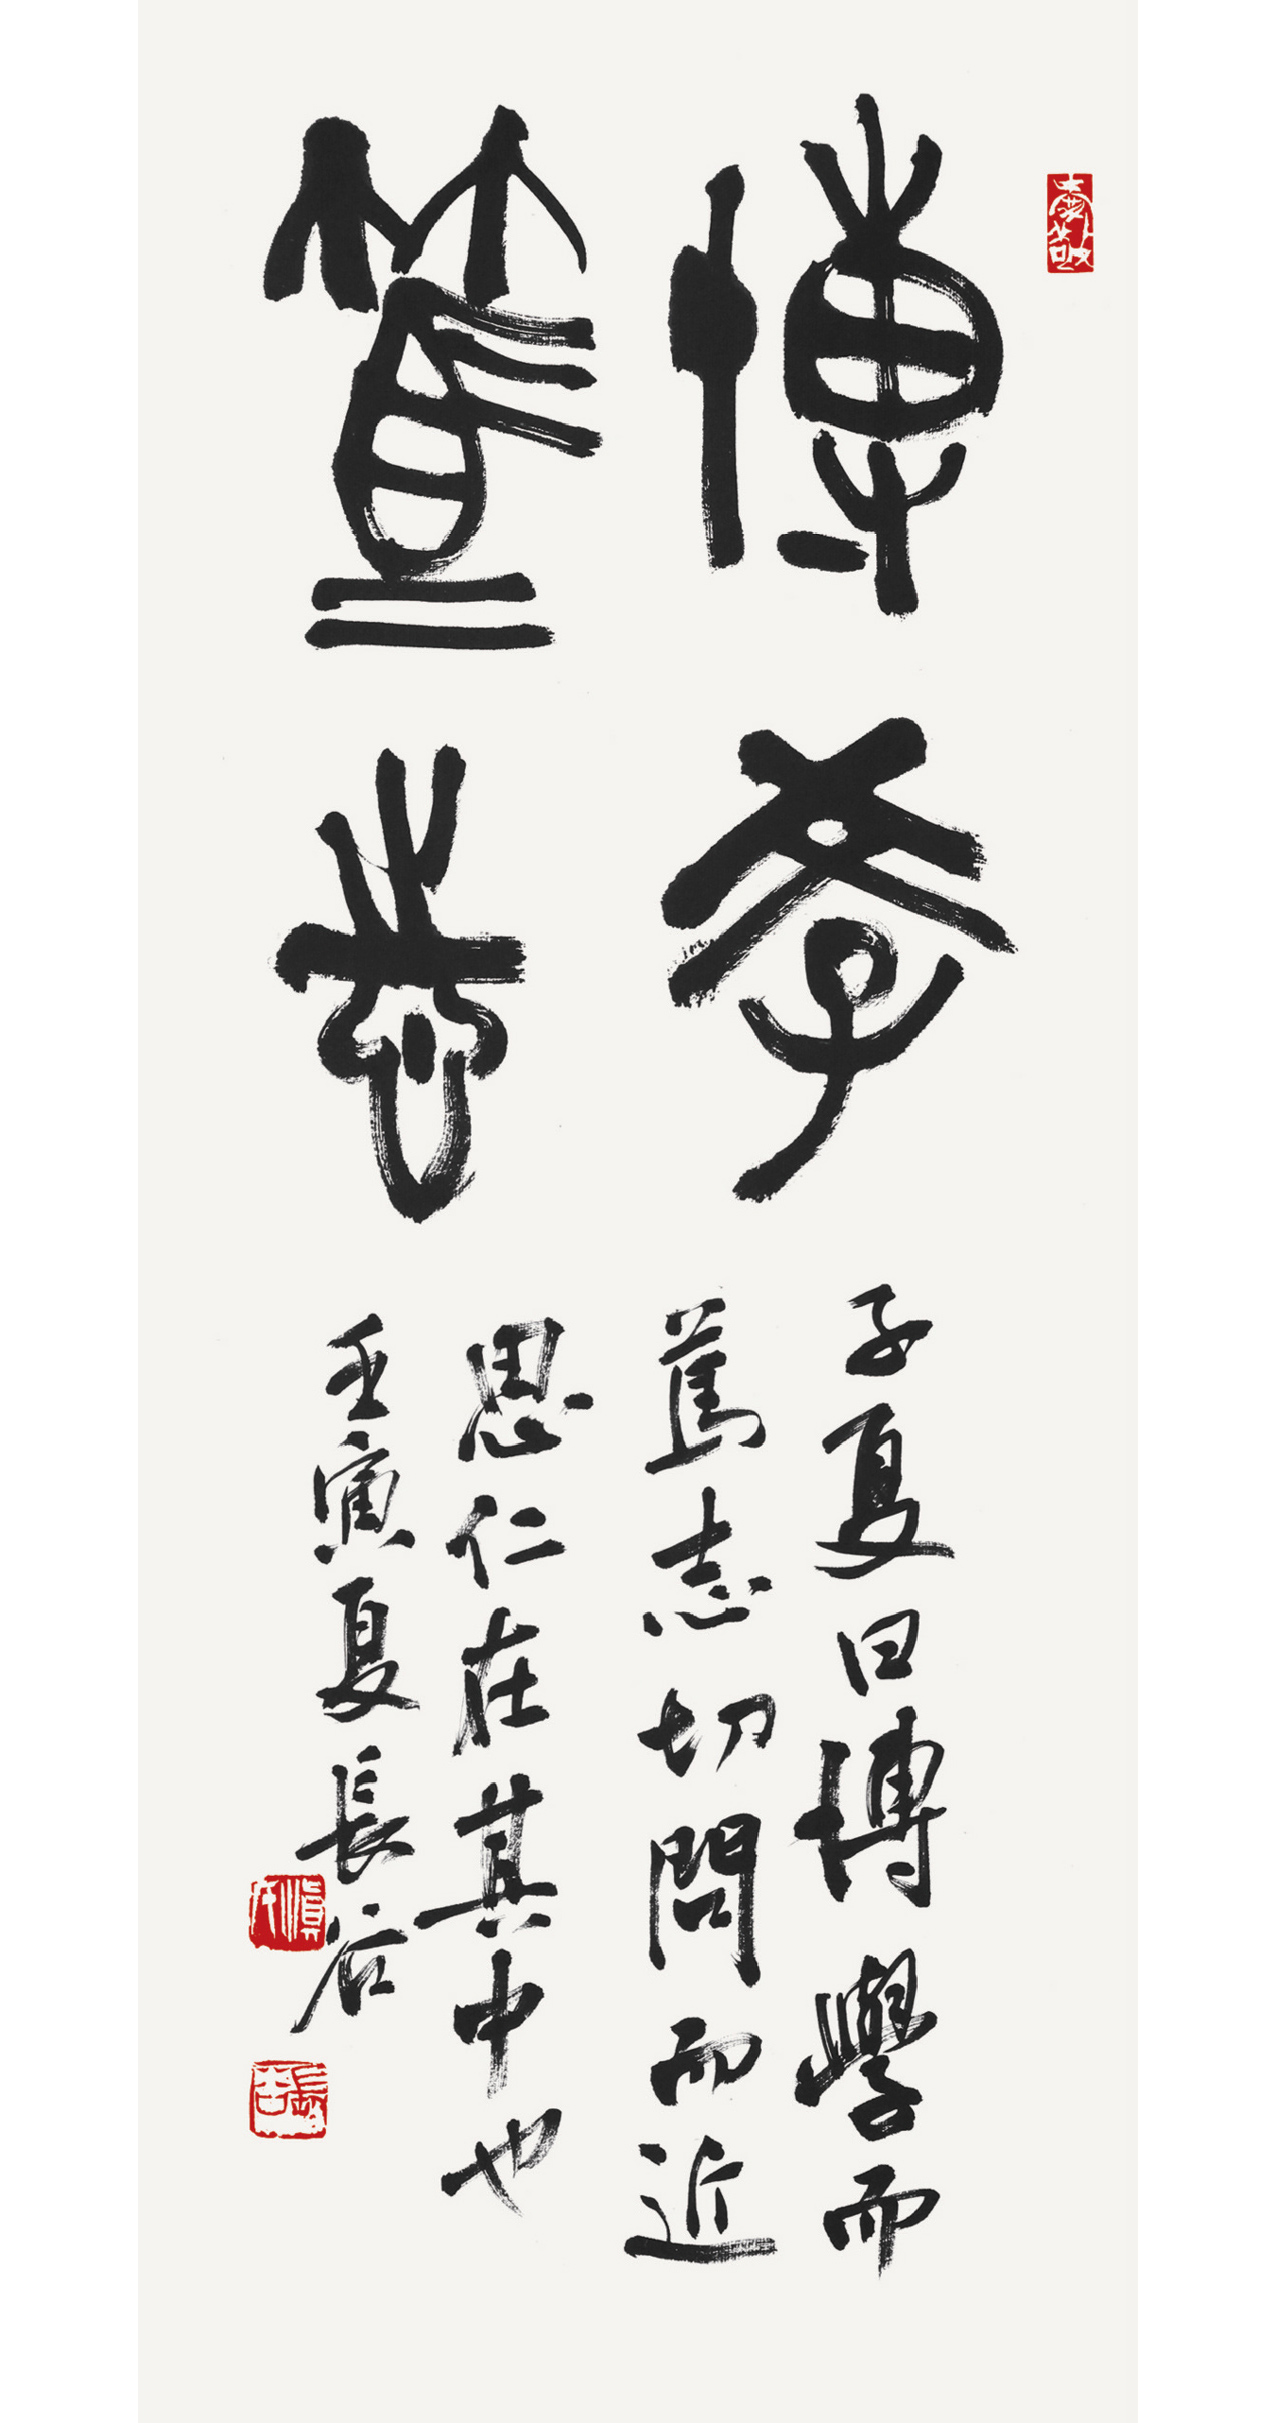 博學
篤志
子夏曰博學而
篤志切問而近
思仁在其中也
壬寅夏長谷